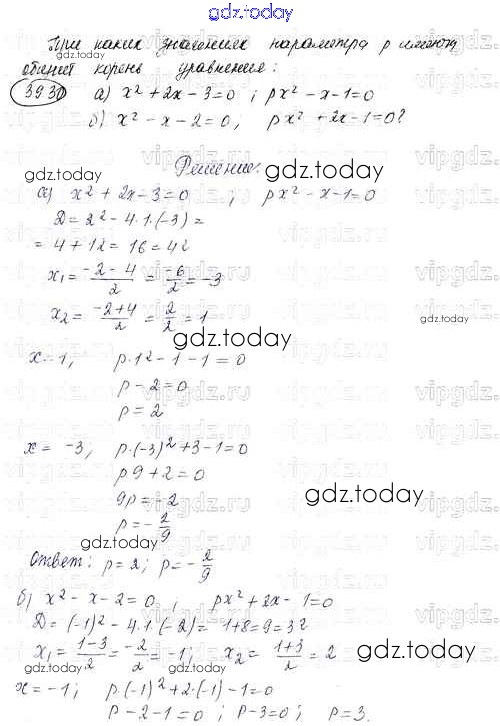 gdz.today
При каких значениях параметра p имеют
общий корень уравнения:
393 а) x² + 2x - 3 = 0 ; px² - x - 1 = 0
б) x² - x - 2 = 0, px² + 2x - 1 = 0?
Решение:
gdz.today
а) x² + 2x - 3 = 0 ; px² - x - 1 = 0
D = 2² - 4·1·(-3) =
= 4 + 12 = 16 = 4²
x₁ = (-2-4)/2 = -6/2 = -3
x₂ = (-2+4)/2 = 2/2 = 1
gdz.today
gdz.today
x = 1, p·1² - 1 - 1 = 0
p - 2 = 0
p = 2
x = -3, p·(-3)² + 3 - 1 = 0
p9 + 2 = 0
9p = -2
gdz.today
p = -2/9
gdz.today
Ответ: p = 2; p = -2/9
б) x² - x - 2 = 0, ; px² + 2x - 1 = 0
D = (-1)² - 4·1·(-2) = 1+8 = 9 = 3²
x₁ = (1-3)/2 = -2/2 = -1; x₂ = (1+3)/2 = 2
x = -1; p·(-1)² + 2·(-1) - 1 = 0
p - 2 - 1 = 0 ; p - 3 = 0 ; p = 3.